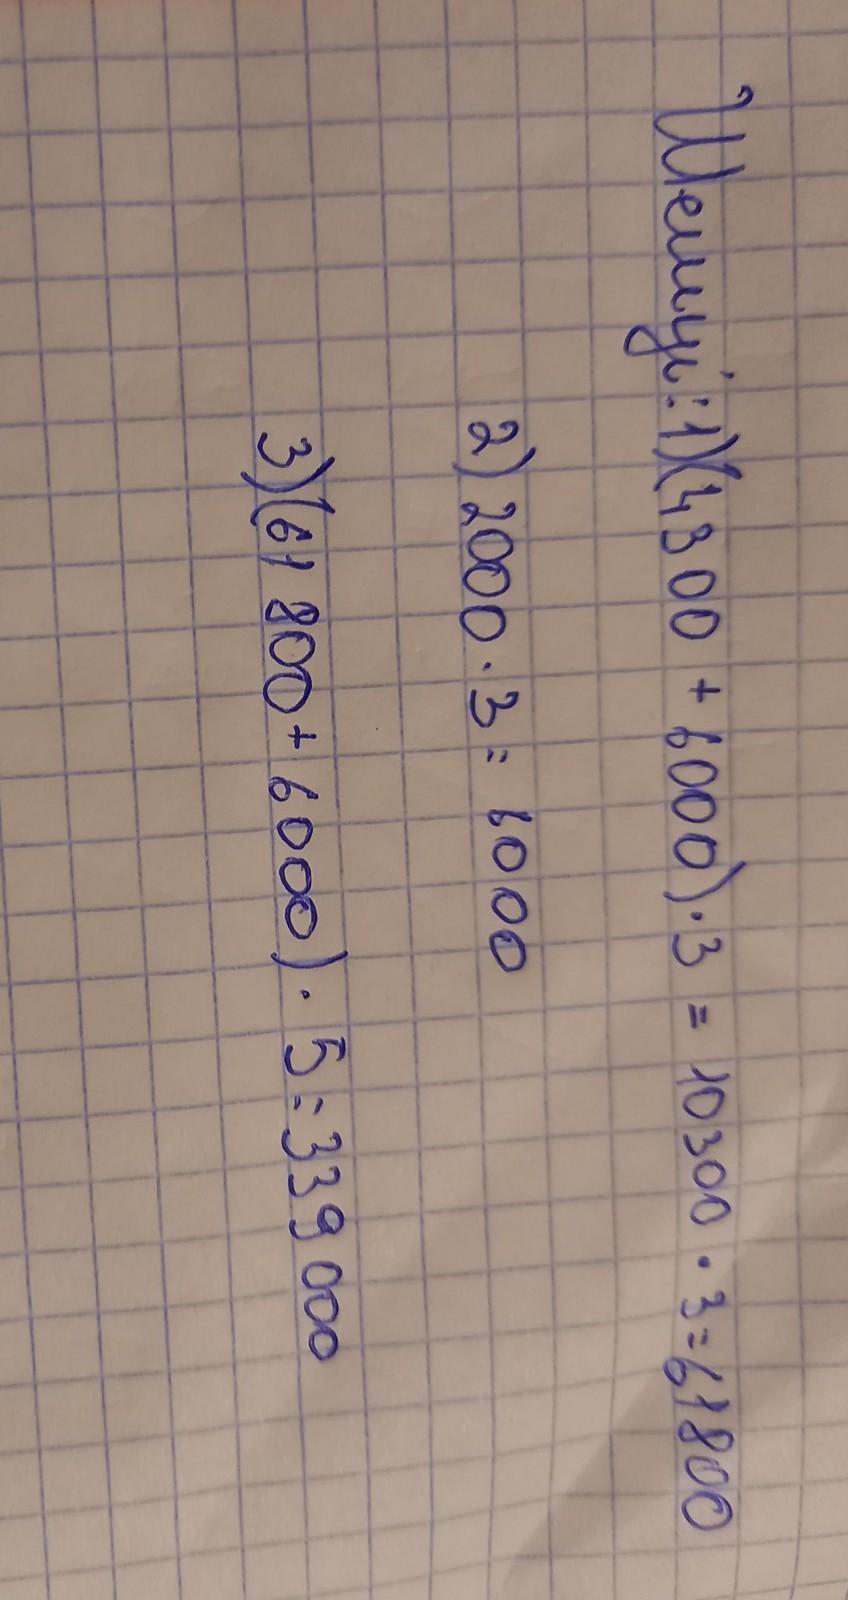 Шешуі: 1) (4300 + 6000) · 3 = 10300 · 3 = 61800
2) 2000 · 3 = 6000
3) (61 800 + 6000) · 5 = 339 000